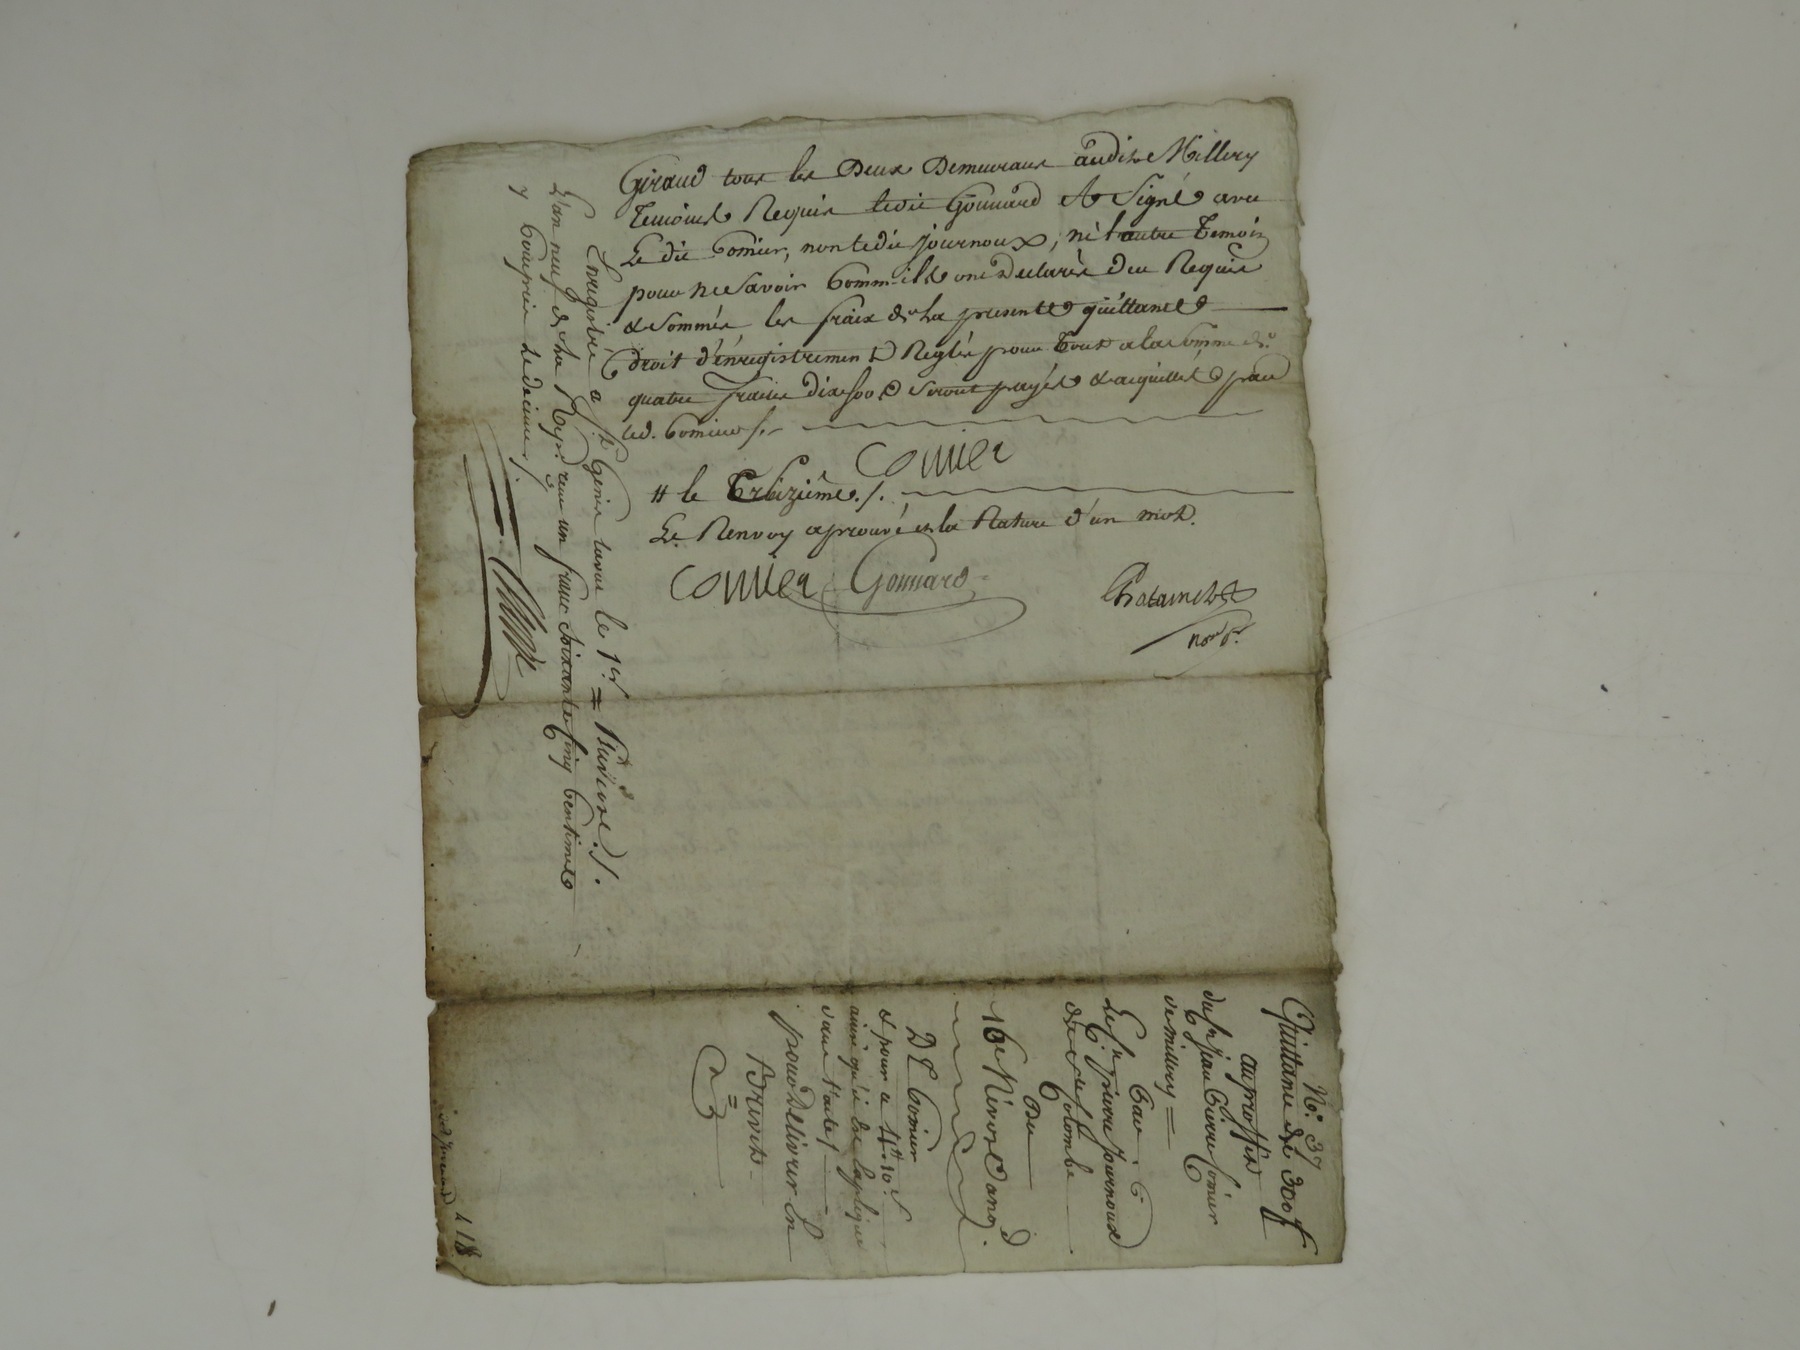 Giraud tous les Deux Demeurant audit Millery
Temoins Requis ledit Gonnard A Signé avec
Le dit Comier, non ledit Journoux, ni l'autre Temoin
pour ne Savoir Comm-ils ont Declarés Deu Requis
& Sommés les fraix de La presente quittance
droit d'énregistrement Reglés pour Tout a la Somme de
quatre francs dix sous Seront payés & acquittés par
led. Comier /.
Comier
# le Treizième ./.
Le Renvoy aprouvé et la Rature d'un mot.
Comier Gonnard
Chatainel
Nore P.
Enregistré a St Genis Laval le 1er = Pluviose ./.
L'an neuf de la Rep. reçu un franc soixante cinq Centimes
y Compris le décime /.
N.º 37
Quittance de 300 f
au proffit
du sr jean Pierre Comier
de Millery =
Par
Le sr pierre Journoux
de Ste Colombe
Du
16e Nivose an 9.
D L Comier
& pour a 4tt 10s
pour Délivrer En
Brevets
418